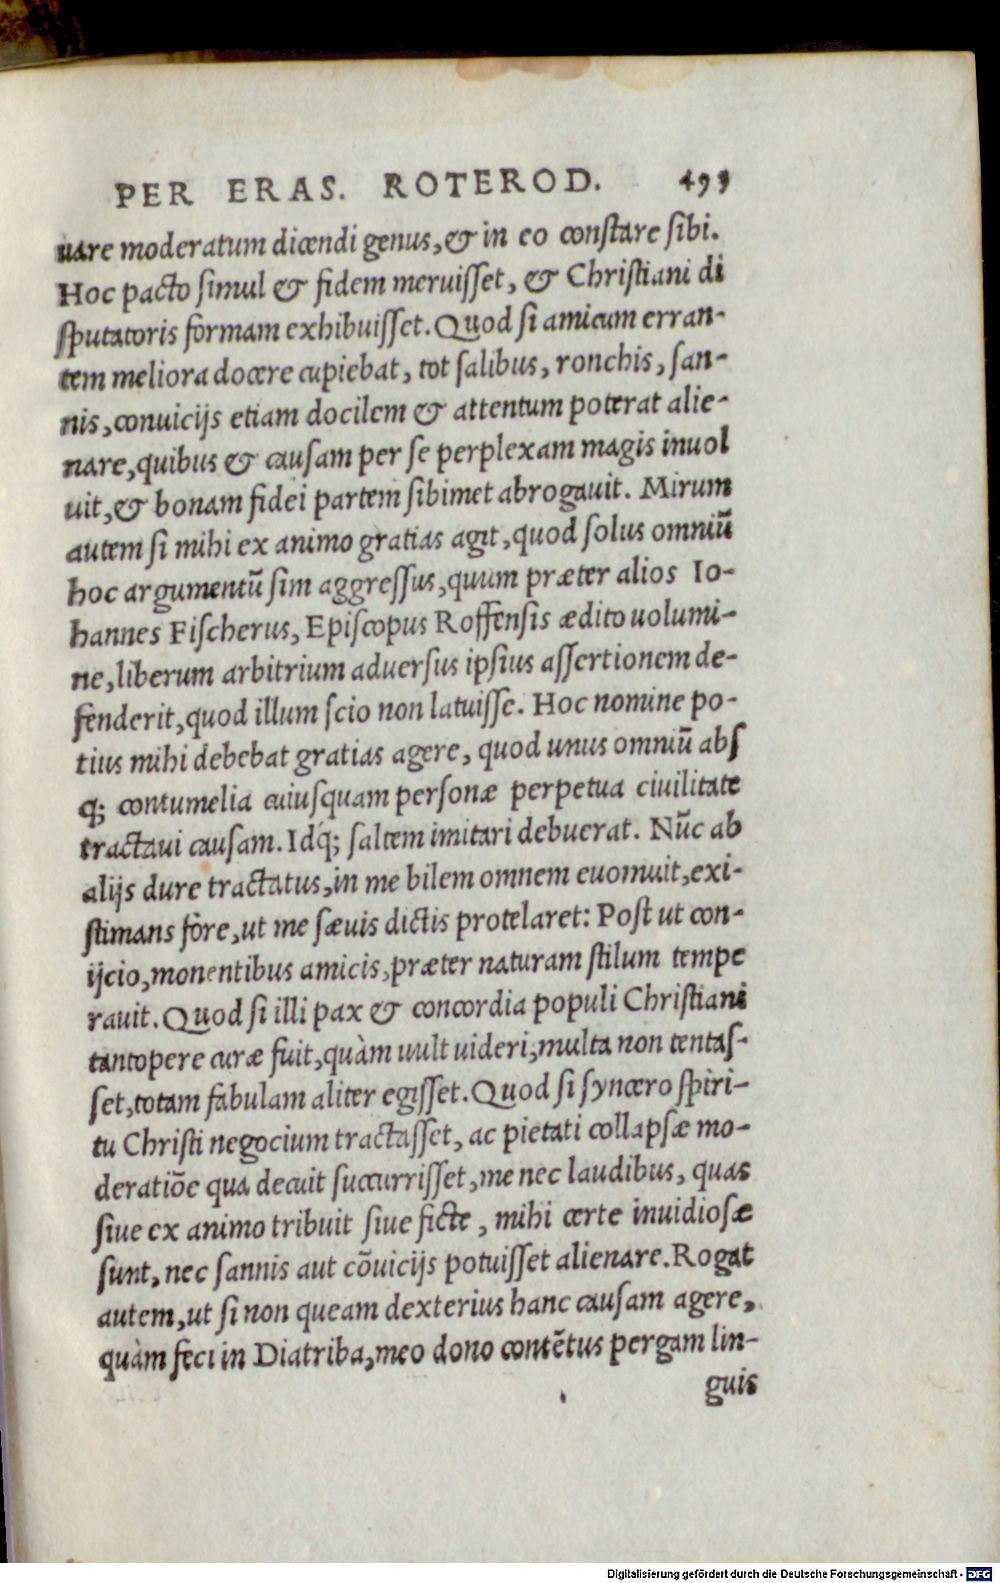 PER ERAS. ROTEROD. 499
uare moderatum dicendi genus, & in eo constare sibi.
Hoc pacto simul & fidem meruisset, & Christiani di
sputatoris formam exhibuisset. Quod si amicum erran-
tem meliora docere cupiebat, tot salibus, ronchis, san-
nis, conuicijs etiam docilem & attentum poterat alie-
nare, quibus & causam per se perplexam magis inuol
uit, & bonam fidei partem sibimet abrogauit. Mirum
autem si mihi ex animo gratias agit, quod solus omniũ
hoc argumentũ sim aggressus, quum præter alios Io-
hannes Fischerus, Episcopus Roffensis ædito uolumi-
ne, liberum arbitrium aduersus ipsius assertionem de-
fenderit, quod illum scio non latuisse. Hoc nomine po-
tius mihi debebat gratias agere, quod unus omniũ abs
q; contumelia cuiusquam personæ perpetua ciuilitate
tractaui causam. Idq́; saltem imitari debuerat. Nũc ab
alijs dure tractatus, in me bilem omnem euomuit, exi-
stimans fore, ut me sæuis dictis protelaret: Post ut con-
ijcio, monentibus amicis, præter naturam stilum tempe
rauit. Quod si illi pax & concordia populi Christiani
tantopere curæ fuit, quàm uult uideri, multa non tentas-
set, totam fabulam aliter egisset. Quod si syncero spiri-
tu Christi negocium tractasset, ac pietati collapsæ mo-
deratiõe qua decuit succurrisset, me nec laudibus, quas
siue ex animo tribuit siue ficte, mihi certe inuidiosæ
sunt, nec sannis aut cõuicijs potuisset alienare. Rogat
autem, ut si non queam dexterius hanc causam agere,
quàm feci in Diatriba, meo dono contẽtus pergam lin-
guis
Digitalisierung gefördert durch die Deutsche Forschungsgemeinschaft - DFG